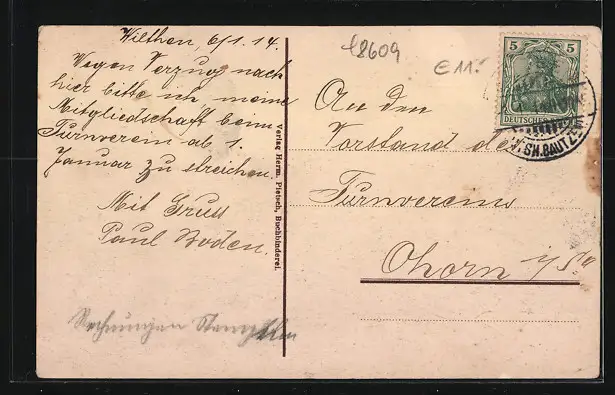 Wilthen, 6/1. 14.
Wegen Verzug nach
hier bitte ich meine
Mitgliedschaft beim
Turnverein ab 1.
Januar zu streichen.
Mit Gruss
Paul Boden.
Rechnungen
Verlag Herm. Pietsch, Buchbinderei.
18609
E 11.
An den
Vorstand des
Turnvereins
Ohorn i/Sa
5 5
DEUTSCHES
BAUTZEN